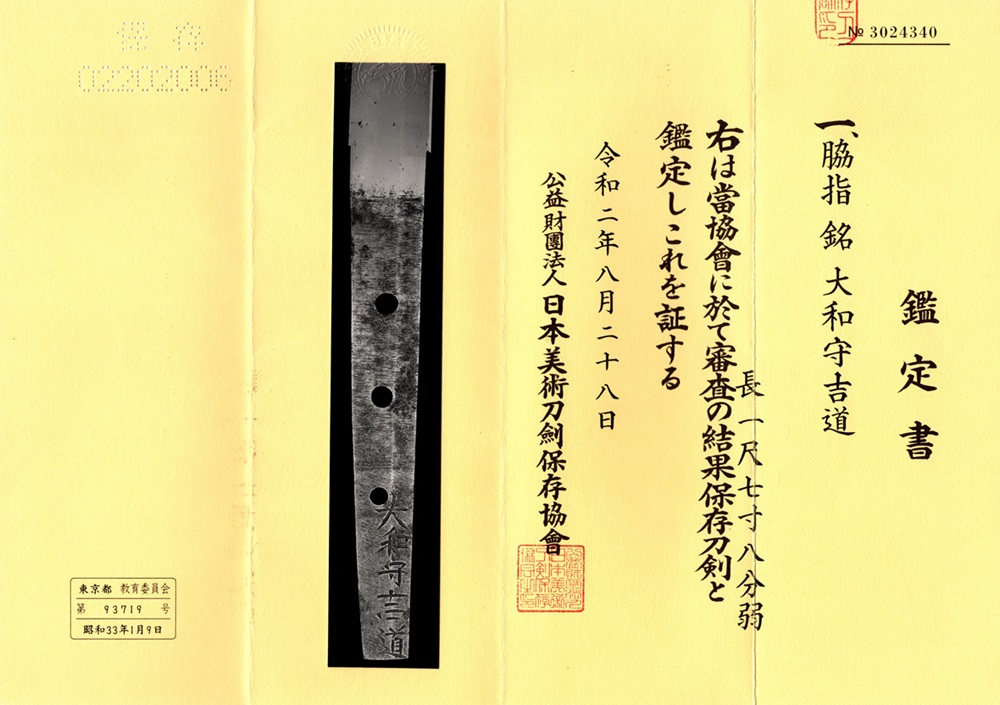 № 3024340
鑑定書
一、脇指 銘 大和守吉道
長一尺七寸八分弱
右は當協會に於て審査の結果保存刀剣と
鑑定しこれを証する
令和二年八月二十八日
公益財團法人 日本美術刀劍保存協會
大和守吉道
保存
02202006
東京都 教育委員会
第 93719 号
昭和33年1月9日